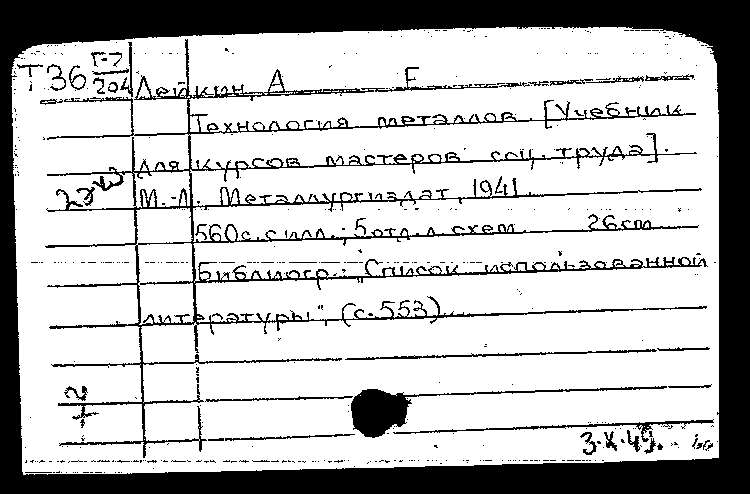 Т36 Г-7/204 Лейкин, А Е
Технология металлов. [Учебник
для курсов мастеров соц. труда].
М.-Л., Металлургиздат, 1941.
560с. с илл.; 5 отд. л. схем. 26 см
Библиогр.: "Список использованной
литературы", (с. 553)
3.X.49.